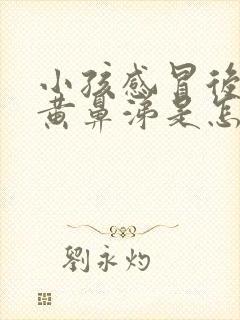 小孩感冒後
黄鼻涕是怎
劉永灼